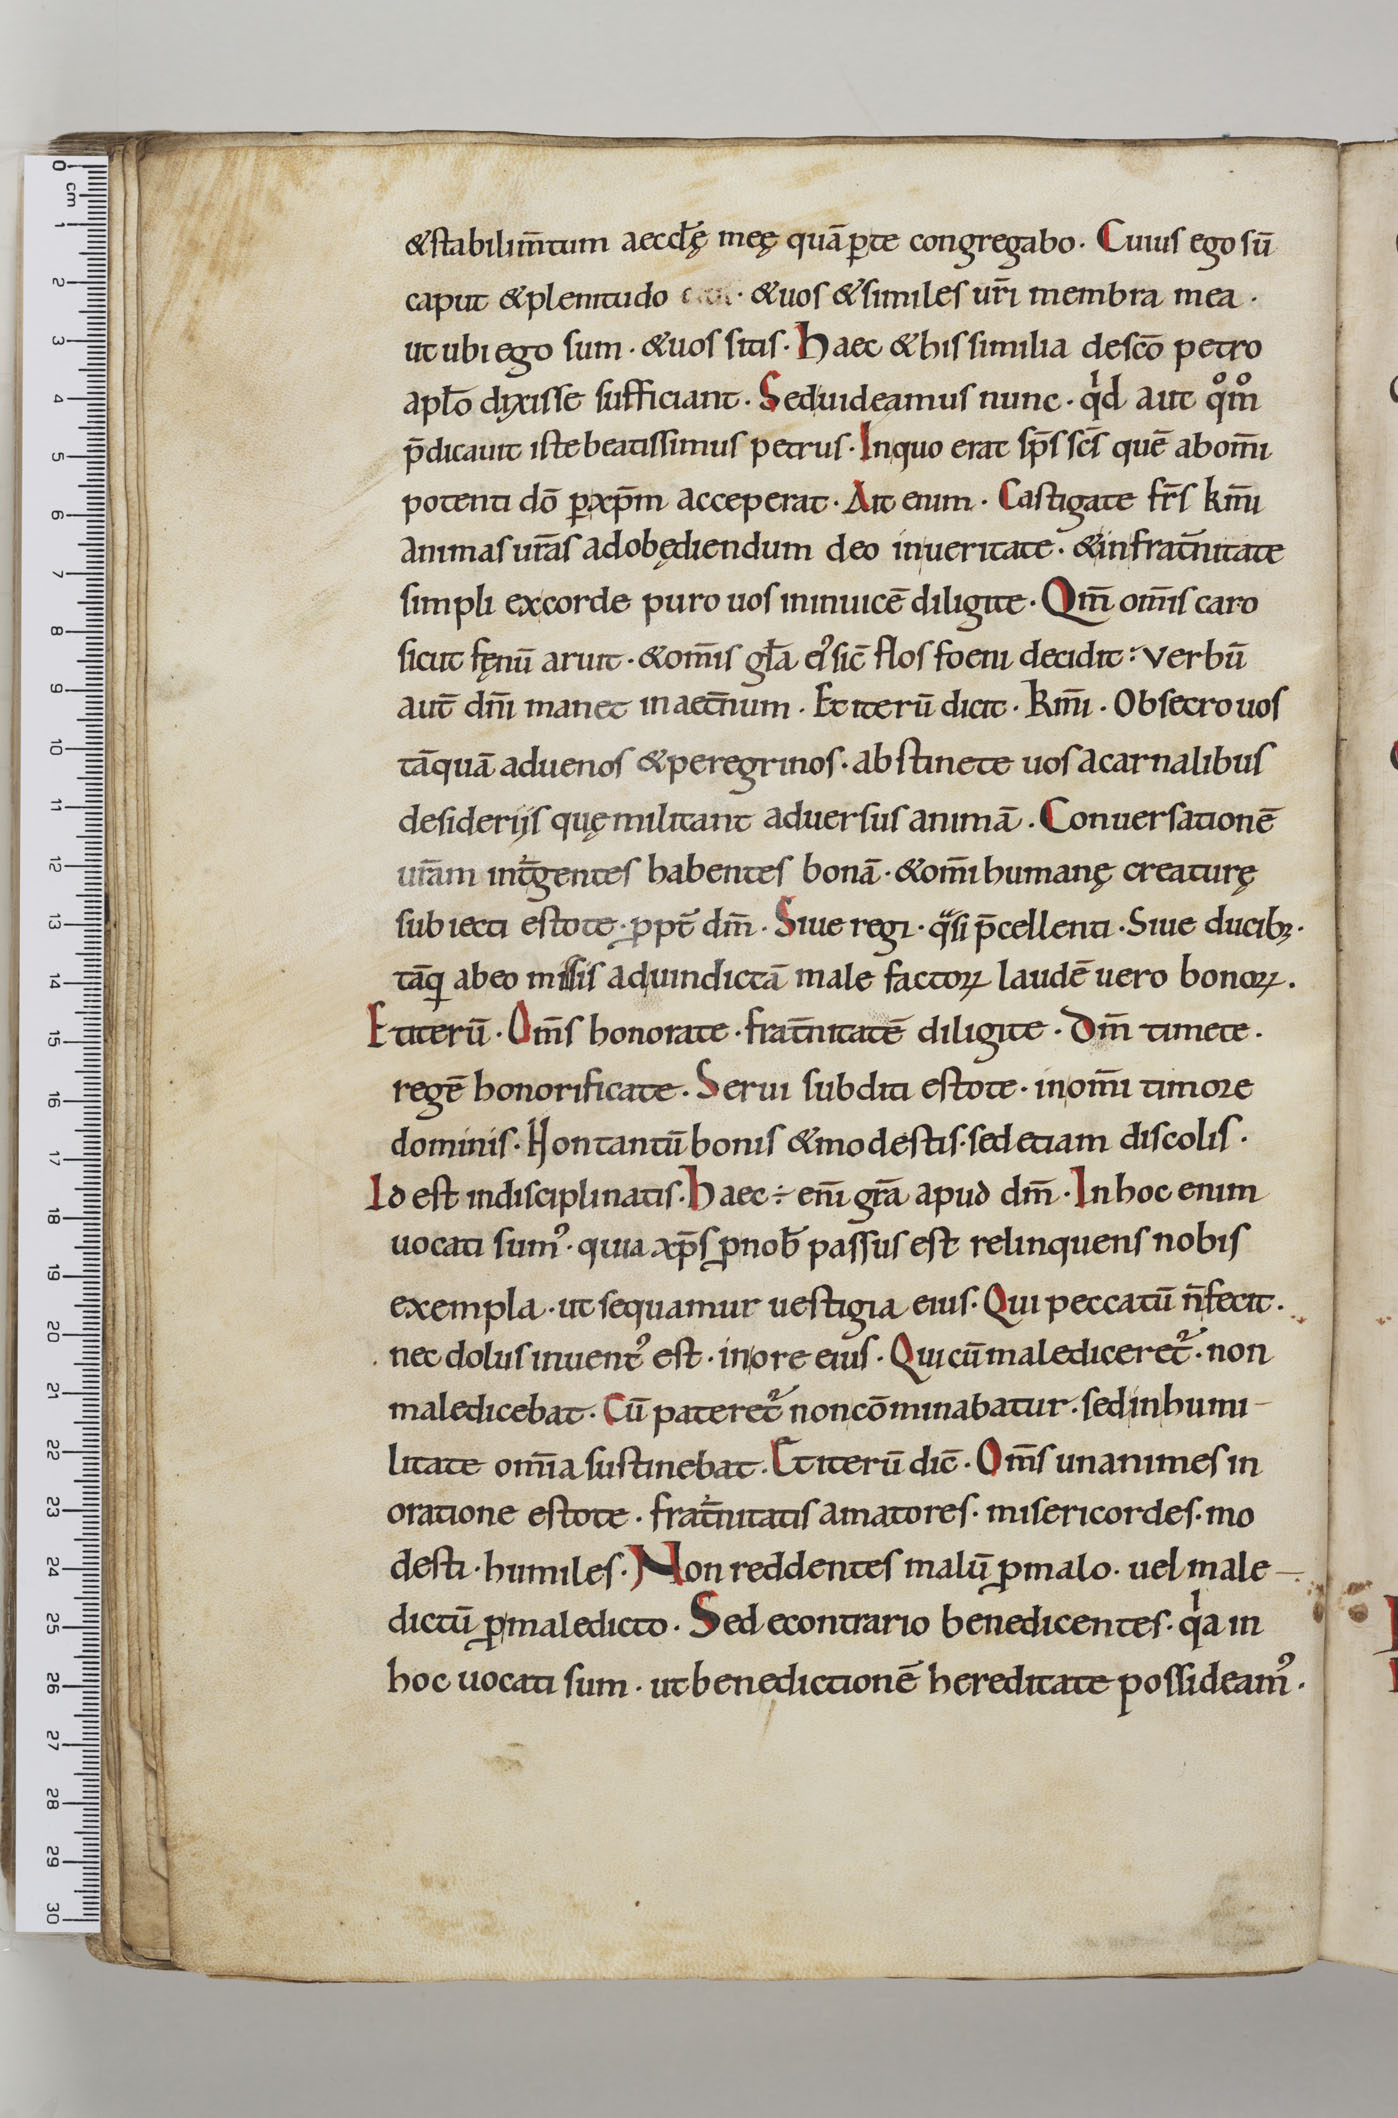 &stabilim̄tum aeccłę męę quā ꝑ te congregabo. Cuius ego sū
caput & plenitudo · & uos & similes ur̄i membra mea ·
ut ubi ego sum · & uos sitis · Haec & his similia de sc̄o petro
apło dixisse sufficiant · Sed uideamus nunc · qͥd aut qͦmͦ
p̄dicauit iste beatissimus petrus · In quo erat sp̄s sc̄s quē ab om̄i
potenti dō ꝑ xp̄m acceperat · Ait enim · Castigate fr̄s km̄i
animas ur̄as ad obędiendum deo in ueritate · & in frat̄nitate
simpli ex corde puro uos inuicē diligite · Qm̄ om̄is caro
sicut fęnū aruit · & om̄is gła ei᾿ sic̄ flos foeni decidit : verbū
aut̄ dn̄i manet in aet̄num · Et iterū dicit · km̄i · Obsecro uos
tāquā aduenos & peregrinos · abstinete uos a carnalibus
desiderijs quę militant aduersus animā · Conuersationē
ur̄am int̄ gentes habentes bonā · & om̄i humanę creaturę
subiecti estote · ꝓpt̄ dm̄ · Siue regi · qͣsi p̄cellenti · Siue ducibꝫ ·
tāqͥ ab eo missis ad uindictā male factoꝝ laudē uero bonoꝝ .
Et iterū · Om̄s honorate · frat̄nitatē diligite · Dm̄ timete .
regē honorificate · Serui subditi estote · in om̄i timore
dominis · Non tantū bonis & modestis · sed etiam discolis .
Id est indisciplinatis · Haec ÷ eni̅ gr̄a apud dm̄ · In hoc enim
uocati sum᾿ · quia xp̄s ꝓ nob̄ passus est relinquens nobis
exempla · ut sequamur uestigia eius · Qui peccatū n̄ fecit .
nec dolus inuent᾿ est · in ore eius · Qui cū malediceret᷑ · non
maledicebat · Cū pateret᷑ non cōminabatur · sed in humi-
litate om̄ia sustinebat · Et iterū dic̄ · Om̄s unanimes in
oratione estote · frat̄nitatis amatores · misericordes · mo
desti · humiles · Non reddentes malū ꝓ malo · uel male-
dictū ꝓ maledicto · Sed econtrario benedicentes · qͥa in
hoc uocati sum · ut benedictionē hereditate possideam᾿ .